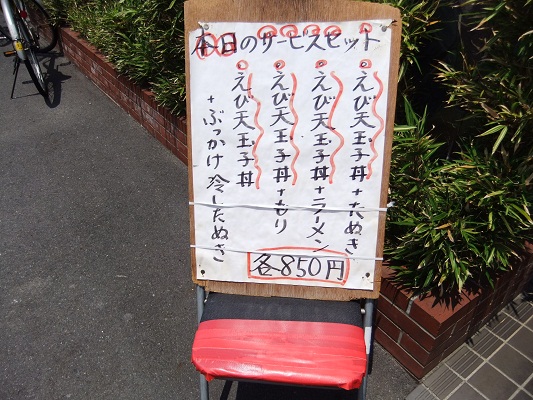 本日のサービスセット
えび天玉子丼+たぬき
えび天玉子丼+ラーメン
えび天玉子丼+もり
えび天玉子丼
+ぶっかけ冷したぬき
各850円